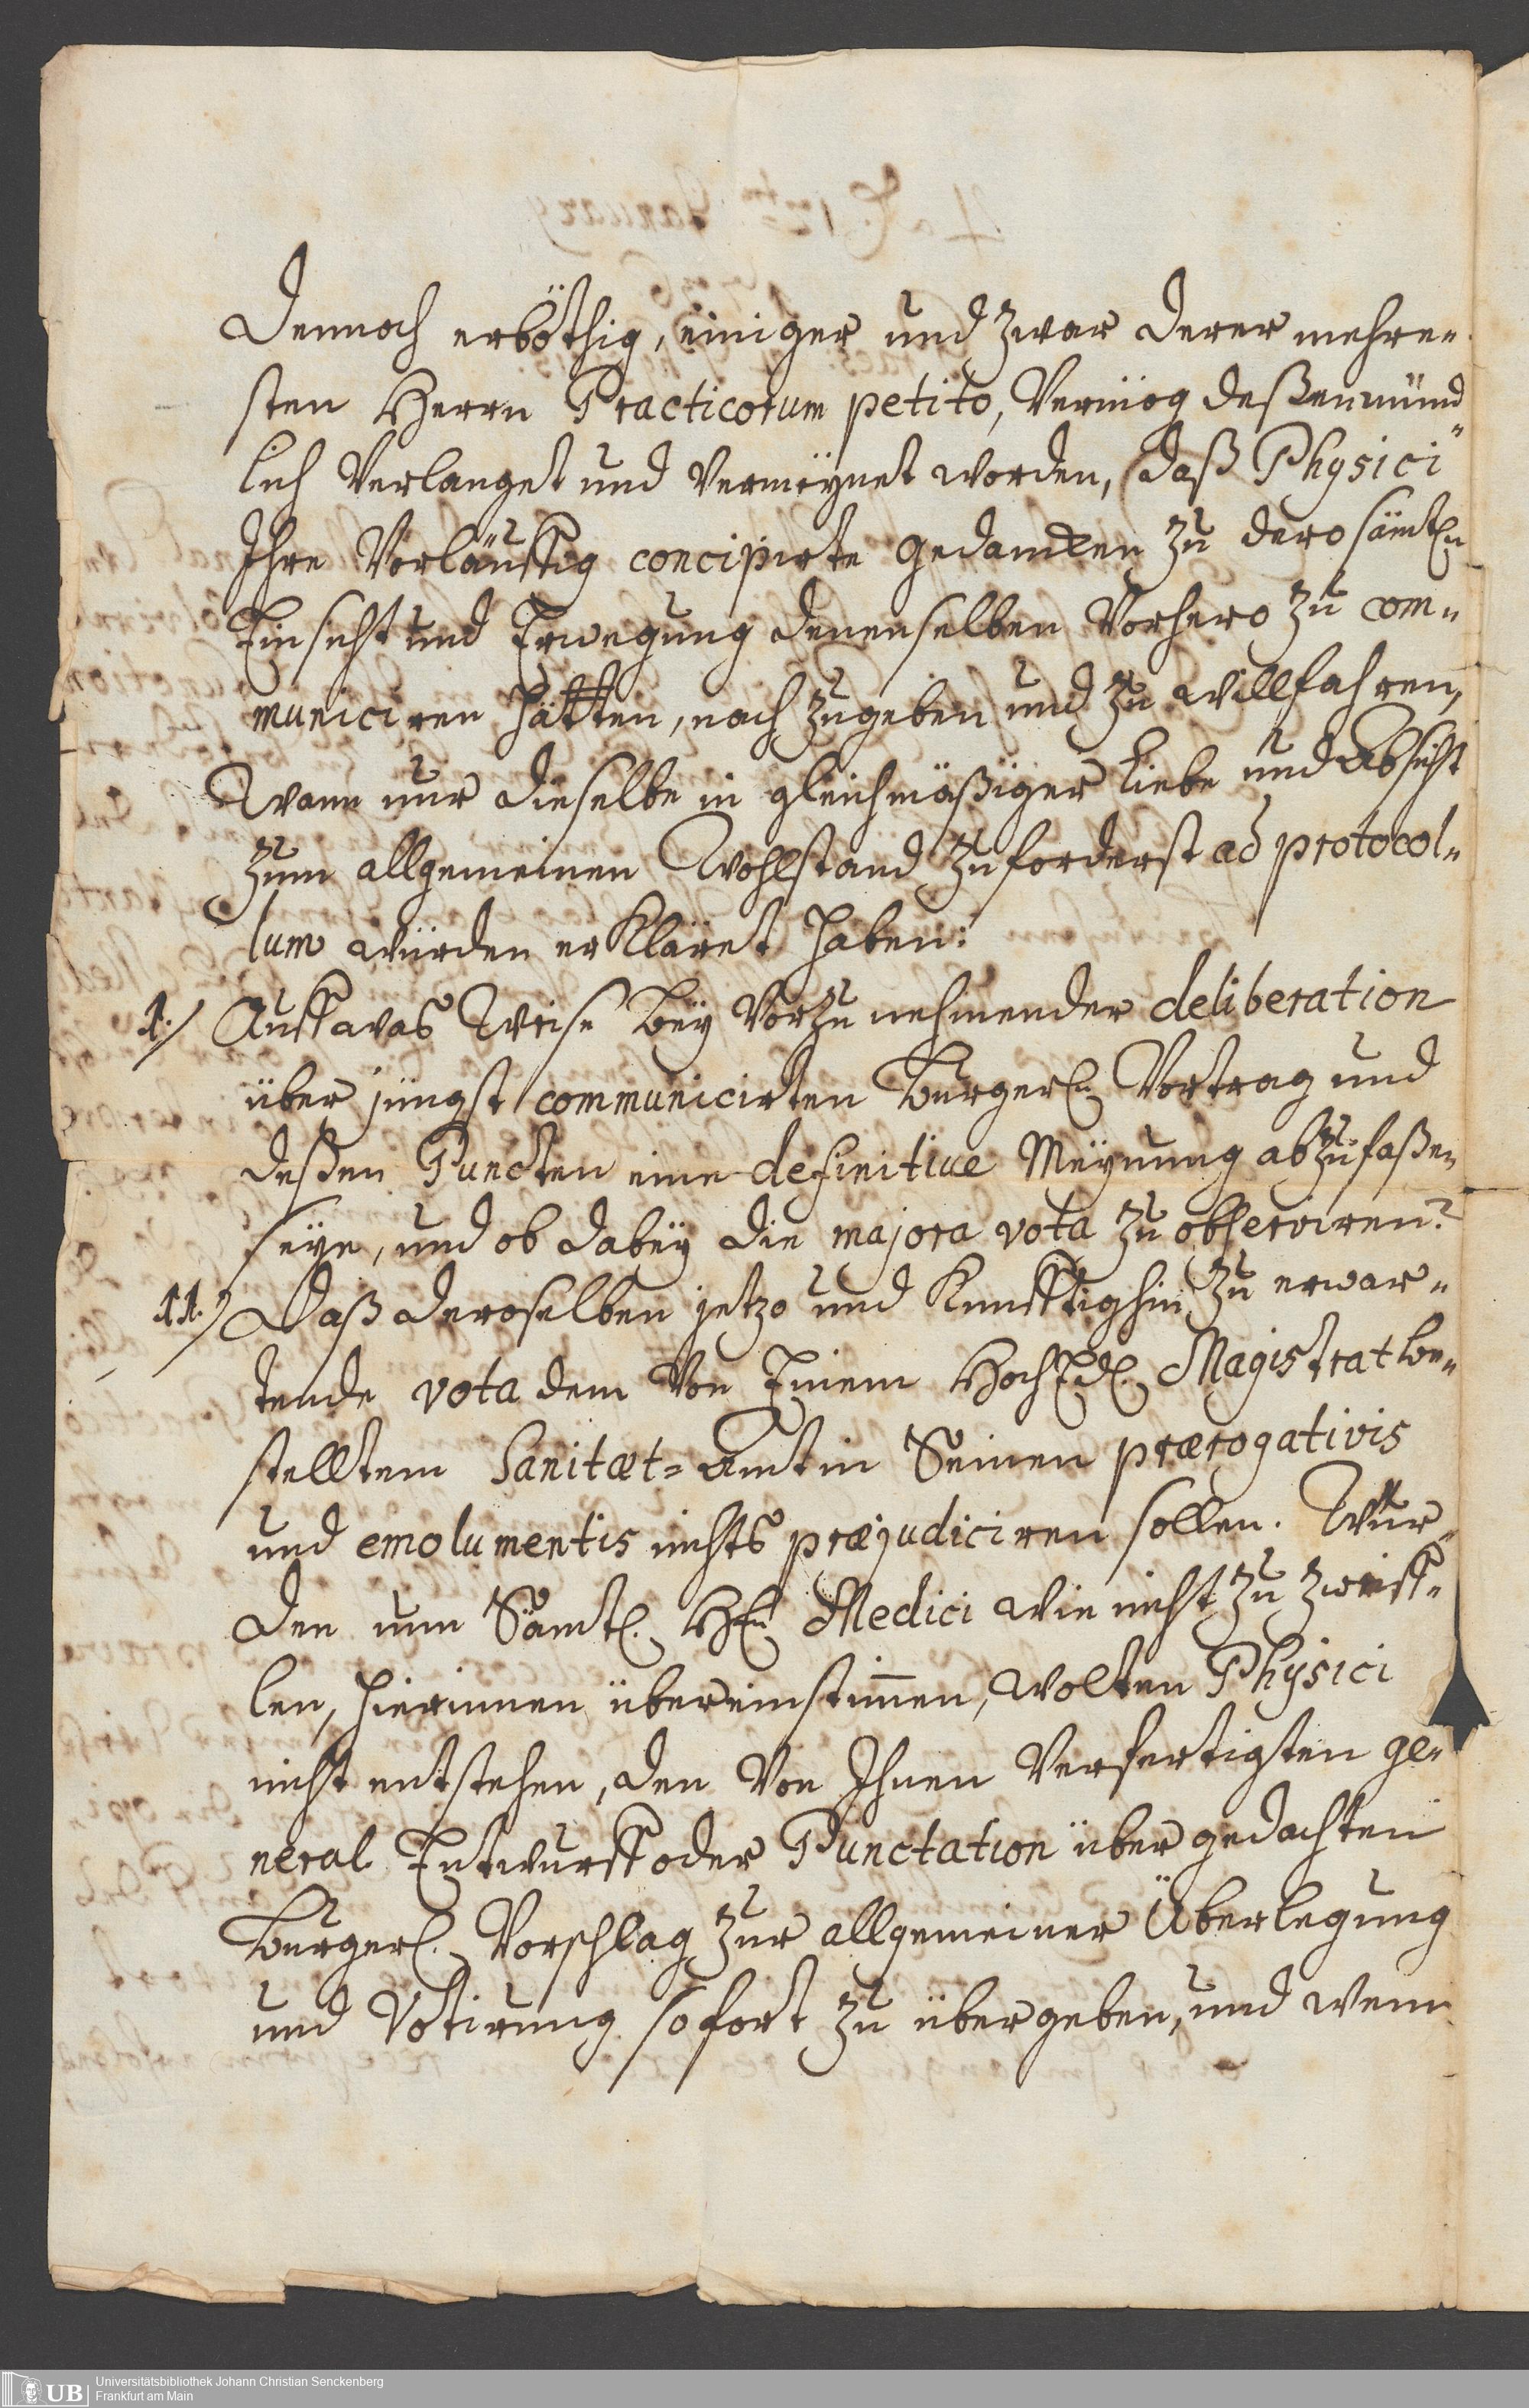 Dennoch erböthig, einiger und zwar derer mehre-
sten Herrn Practicorum petito, Vermög deßen münd-
lich Verlanget und Vermeynet worden, daß Physici
Ihre Vorläuffig concipirte Gedancken zu dero sämtln
Einsicht und Erwegung denenselben Vorhero zu com-
municiren hätten, nach zugeben und zu willfahren,
Wann nur dieselbe in gleichmäßiger Liebe und Absicht
zum allgemeinen Wohlstand zuforderst ad protocol-
lum würden erkläret haben:
1./ Auff was Weise bey Vorzunehmender deliberation
über jüngst communicirten Burgerln Vortrag und
deßen Puncten eine definitive Meynung abzufaßen
seye, und ob dabey die majora vota zu observiren?
11./ Daß deroselben jetzo und Künfftighin zu erwar-
tende vota dem Von Einem HochEdl. Magistrat be-
stelltem Sanitæt-Amt in Seinen prærogativis
und emolumentis nichts præjudiciren sollen. Wür-
den nun Sämtl. Hhn Medici wie nicht zu zweiff-
len, hierinnen übereinstim̄en, wolten Physici
nicht entstehen, den Von Ihnen Verfertigten ge-
neral Entwurff oder Punctation über gedachten
Burgerl. Vorschlag zur allgemeiner Überlegung
und Votirung sofort zu übergeben, und wenn
UB
Universitätsbibliothek Johann Christian Senckenberg
Frankfurt am Main